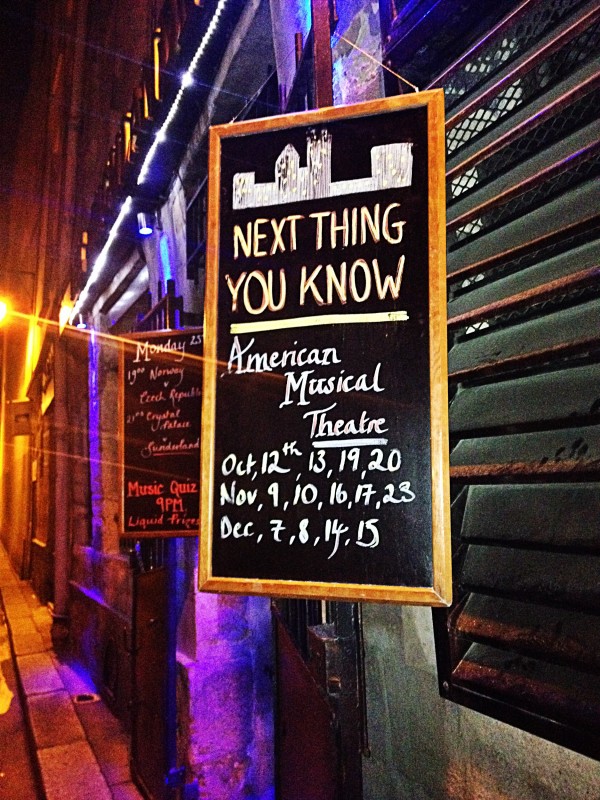 NEXT THING
YOU KNOW
American
Musical
Theatre
Oct, 12th, 13, 19, 20
Nov, 9, 10, 16, 17, 23
Dec, 7, 8, 14, 15
Monday 25
1900 Norway
v
Czech Republic
2100 Crystal
Palace
v
Sunderland
Music Quiz
9PM
Liquid Prizes